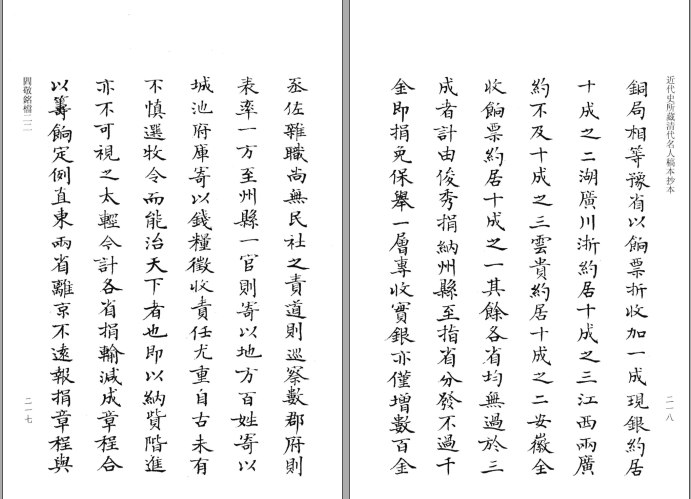 丞佐雜職尚無民社之責道則巡察數郡府則
表率一方至州縣一官則寄以地方百姓寄以
城池府庫寄以錢糧徵收責任尤重自古未有
不慎選牧令而能治天下者也即以納貲階進
亦不可視之太輕今計各省捐輸減成章程合
以籌餉定例直東兩省離京不遠報捐章程與
閻敬銘檔二二
二一七
近代史所藏清代名人稿本抄本
二一八
銅局相等豫省以餉票折收加一成現銀約居
十成之二湖廣川浙約居十成之三江西兩廣
約不及十成之三雲貴約居十成之二安徽全
收餉票約居十成之一其餘各省均無過於三
成者計由俊秀捐納州縣至指省分發不過千
金即捐免保舉一層專收實銀亦僅增數百金